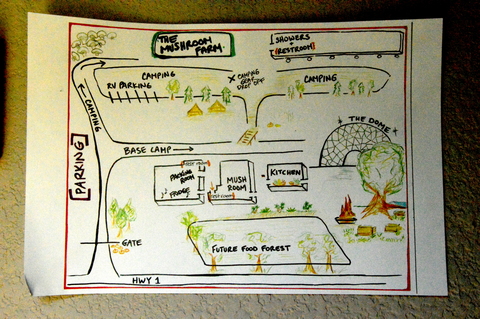 THE
MUSHROOM
FARM.
SHOWERS
+
RESTROOM
CAMPING
RV PARKING
X CAMPING
GEAR
DROP OFF
CAMPING
CAMPING
PARKING
BASE CAMP
THE DOME
REST ROOM
PACKING
ROOM
FRIDGE
MUSH
ROOM
RESTROOM
KITCHEN
GATE
FUTURE FOOD FOREST
HWY 1